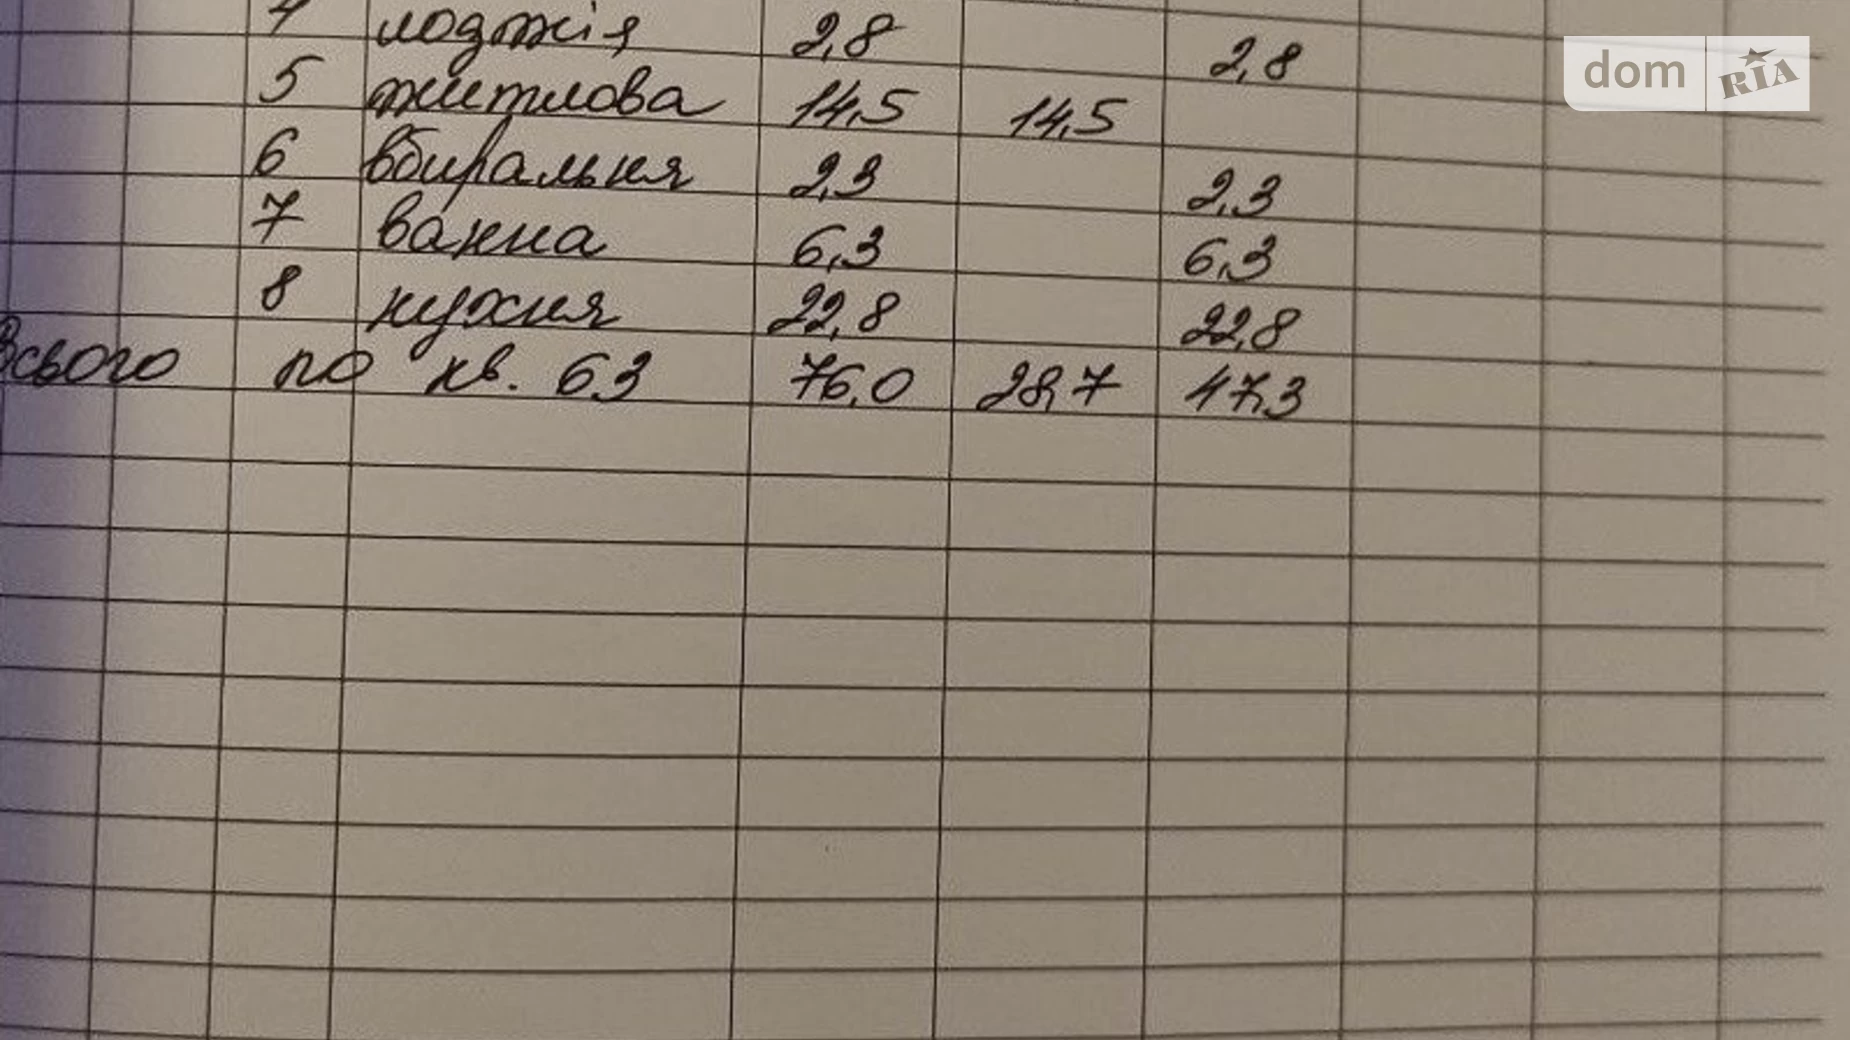 4 лоджія 2,8 2,8
dom RIA
5 житлова 14,5 14,5
6 вбиральня 2,3 2,3
7 ванна 6,3 6,3
8 кухня 22,8 22,8
Всього по кв. 63 76,0 28,7 47,3